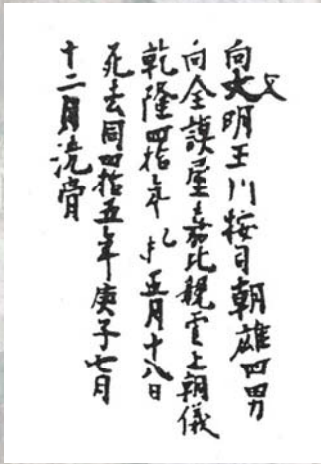 向大明王川按司朝雄四男
向全謨屋嘉比親雲上朝儀
乾隆四拾年乙未五月十八日
死去同四拾五年庚子七月
十二月洗骨